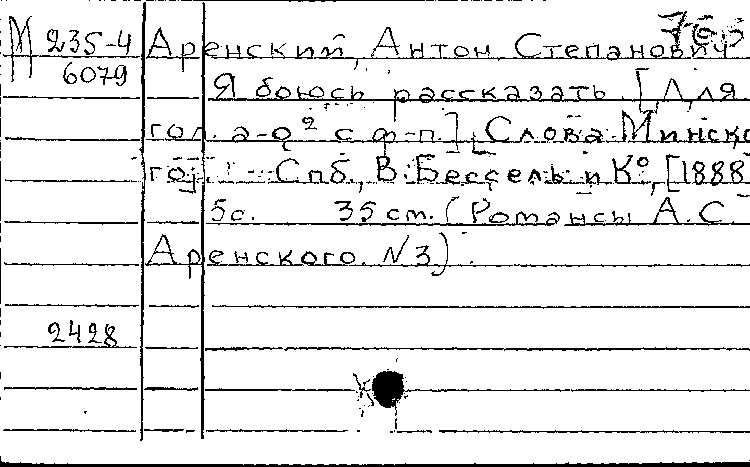 М 235-4 Аренский, Антон Степанович
6079 Я боюсь рассказать. [Для
гол. a-e² с ф-п.] Слова Минско
го]. - Спб., В. Бессель и К°, [1888
5с. 35 см. (Романсы А.С.
Аренского. N3).
2428